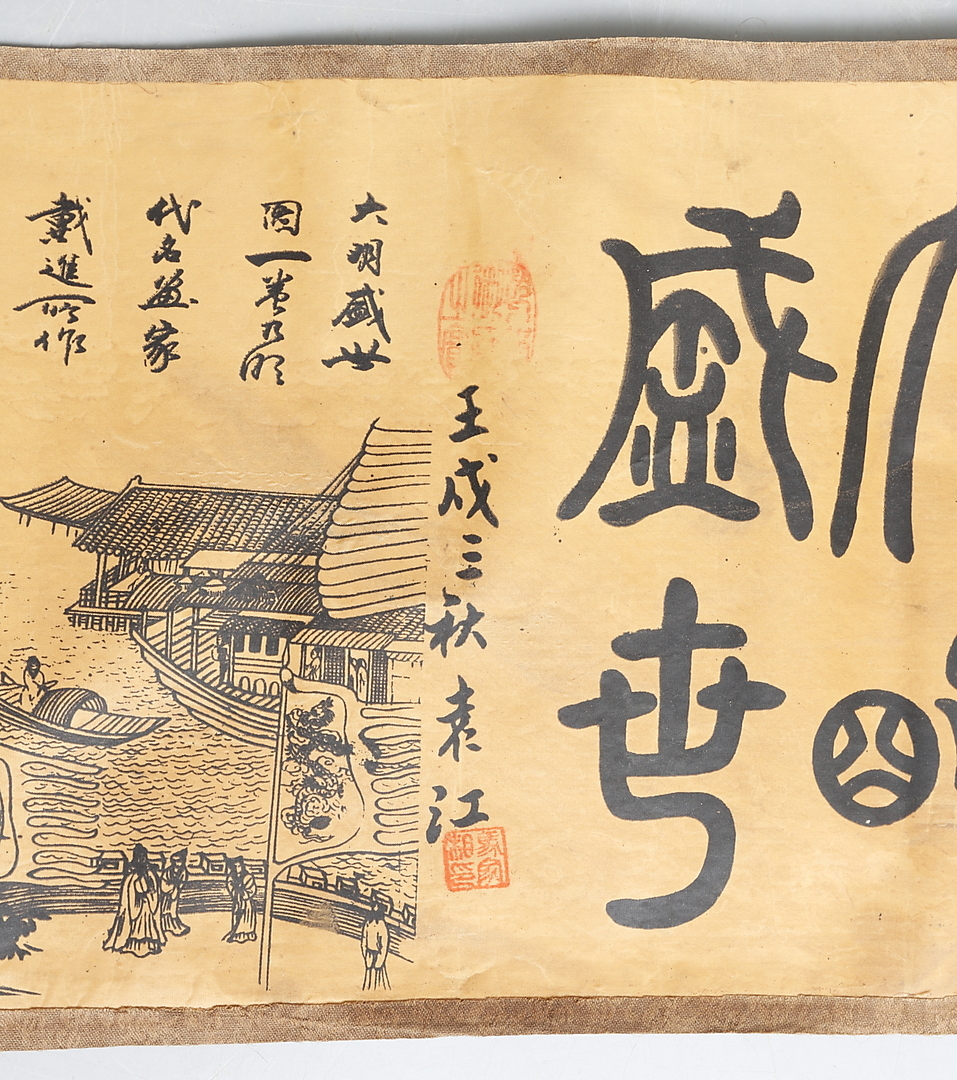 盛世
壬戌三秋 袁江
大明盛世
圖一卷乃明
代名畫家
戴進所作